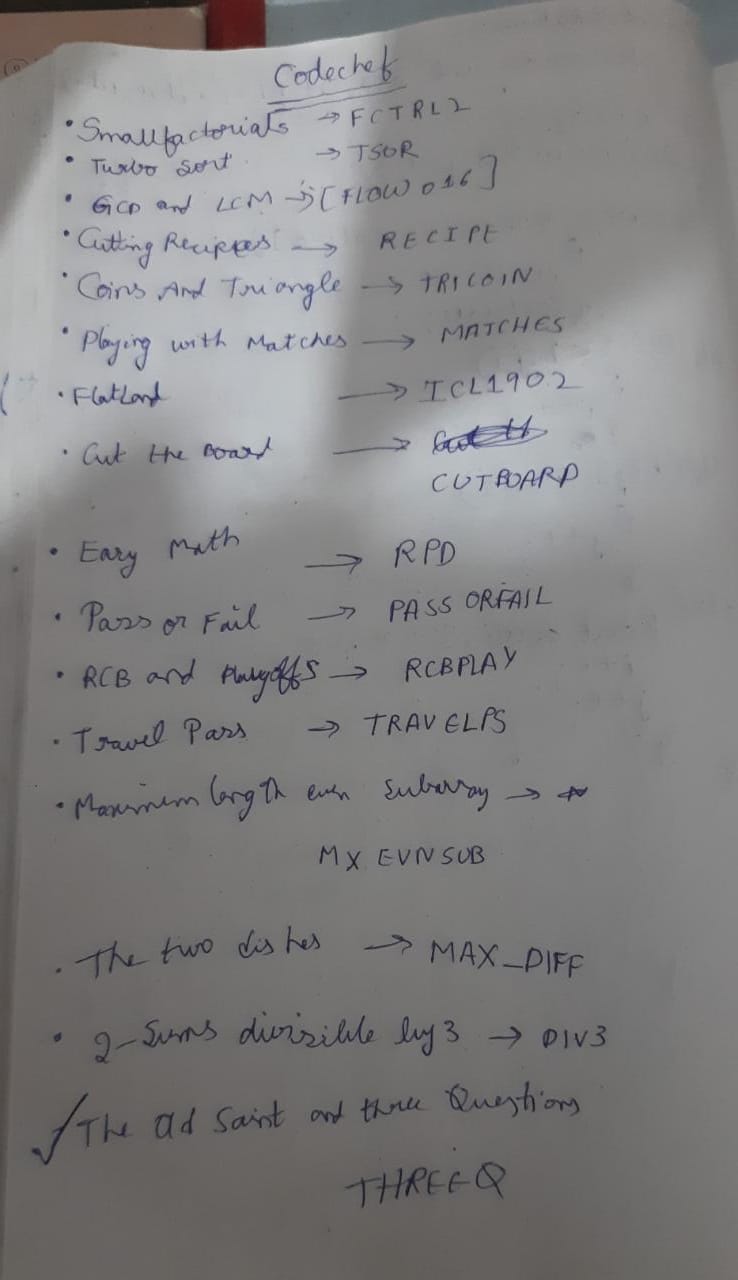 Codechef
• Smallfactorials → FCTRL2
• Turbo Sort → TSOR
• GCD and LCM → [FLOW016]
• Cutting Recippes → RECIPE
• Coins And Triangle → TRICOIN
• Playing with Matches → MATCHES
• FlatLand → ICL1902
• Cut the Board →
CUTBOARD
• Easy Math → RPD
• Pass or Fail → PASSORFAIL
• RCB and Playoffs → RCBPLAY
• Travel Pass → TRAVELPS
• Maximum length even Subarray →
MXEVNSUB
• The two dishes → MAX_DIFF
• 2-Sums divisible by 3 → DIV3
✓ The Old Saint and three Questions
THREEQ